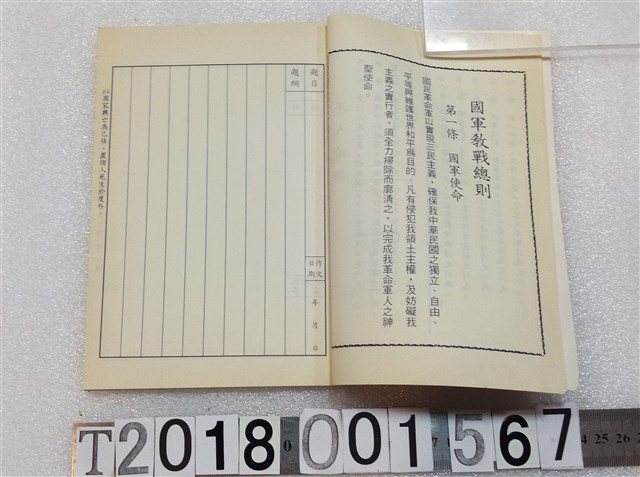 國軍教戰總則
第一條 國軍使命
國民革命軍以實現三民主義，確保我中華民國之獨立、自由、
平等與維護世界和平為目的。凡有侵犯我領土主權，及妨礙我
主義之實行者，須全力掃除而廓清之，以完成我革命軍人之神
聖使命。
題目
題綱
作文日期
年 月 日
以國家興亡為己任、置個人死生於度外。
T2018001567
24 25 26